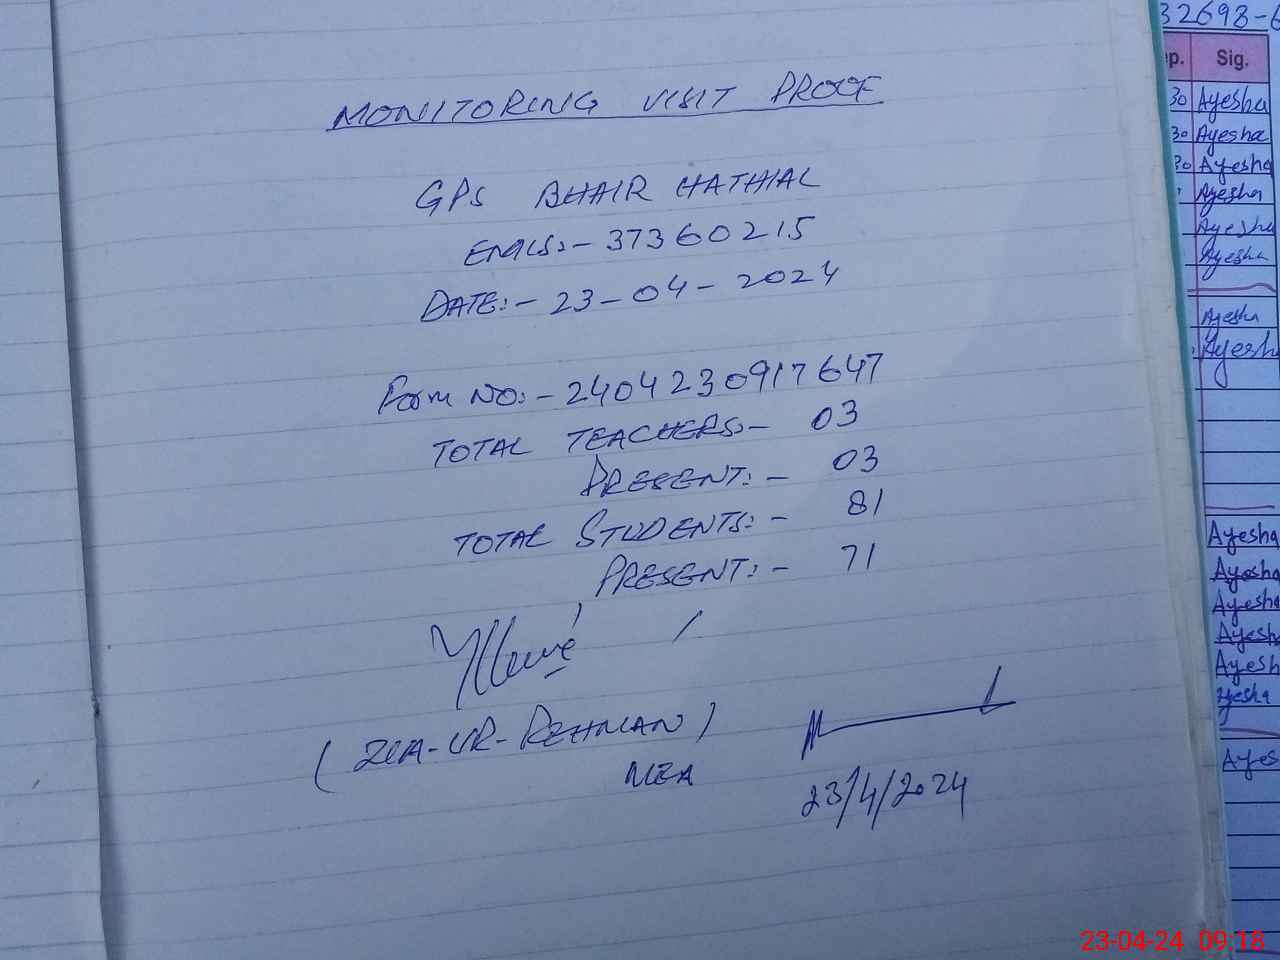 MONITORING VISIT PROOF
GPS BHAIR HATHIAL
EMIS:- 37360215
DATE:- 23-04-2024
Form NO:- 2404230917647
TOTAL TEACHERS:- 03
PRESENT:- 03
TOTAL STUDENTS:- 81
PRESENT:- 71
(ZIA-UR-REHMAN)
MEA
23/4/2024
32698-6
Sig.
30 Ayesha
30 Ayesha
30 Ayesha
Ayesha
Ayesha
Ayesha
Ayesha
Ayesha
Ayesha
Ayesha
Ayesha
Ayesha
Ayesha
Ayesha
Ayes
23-04-24 09:18